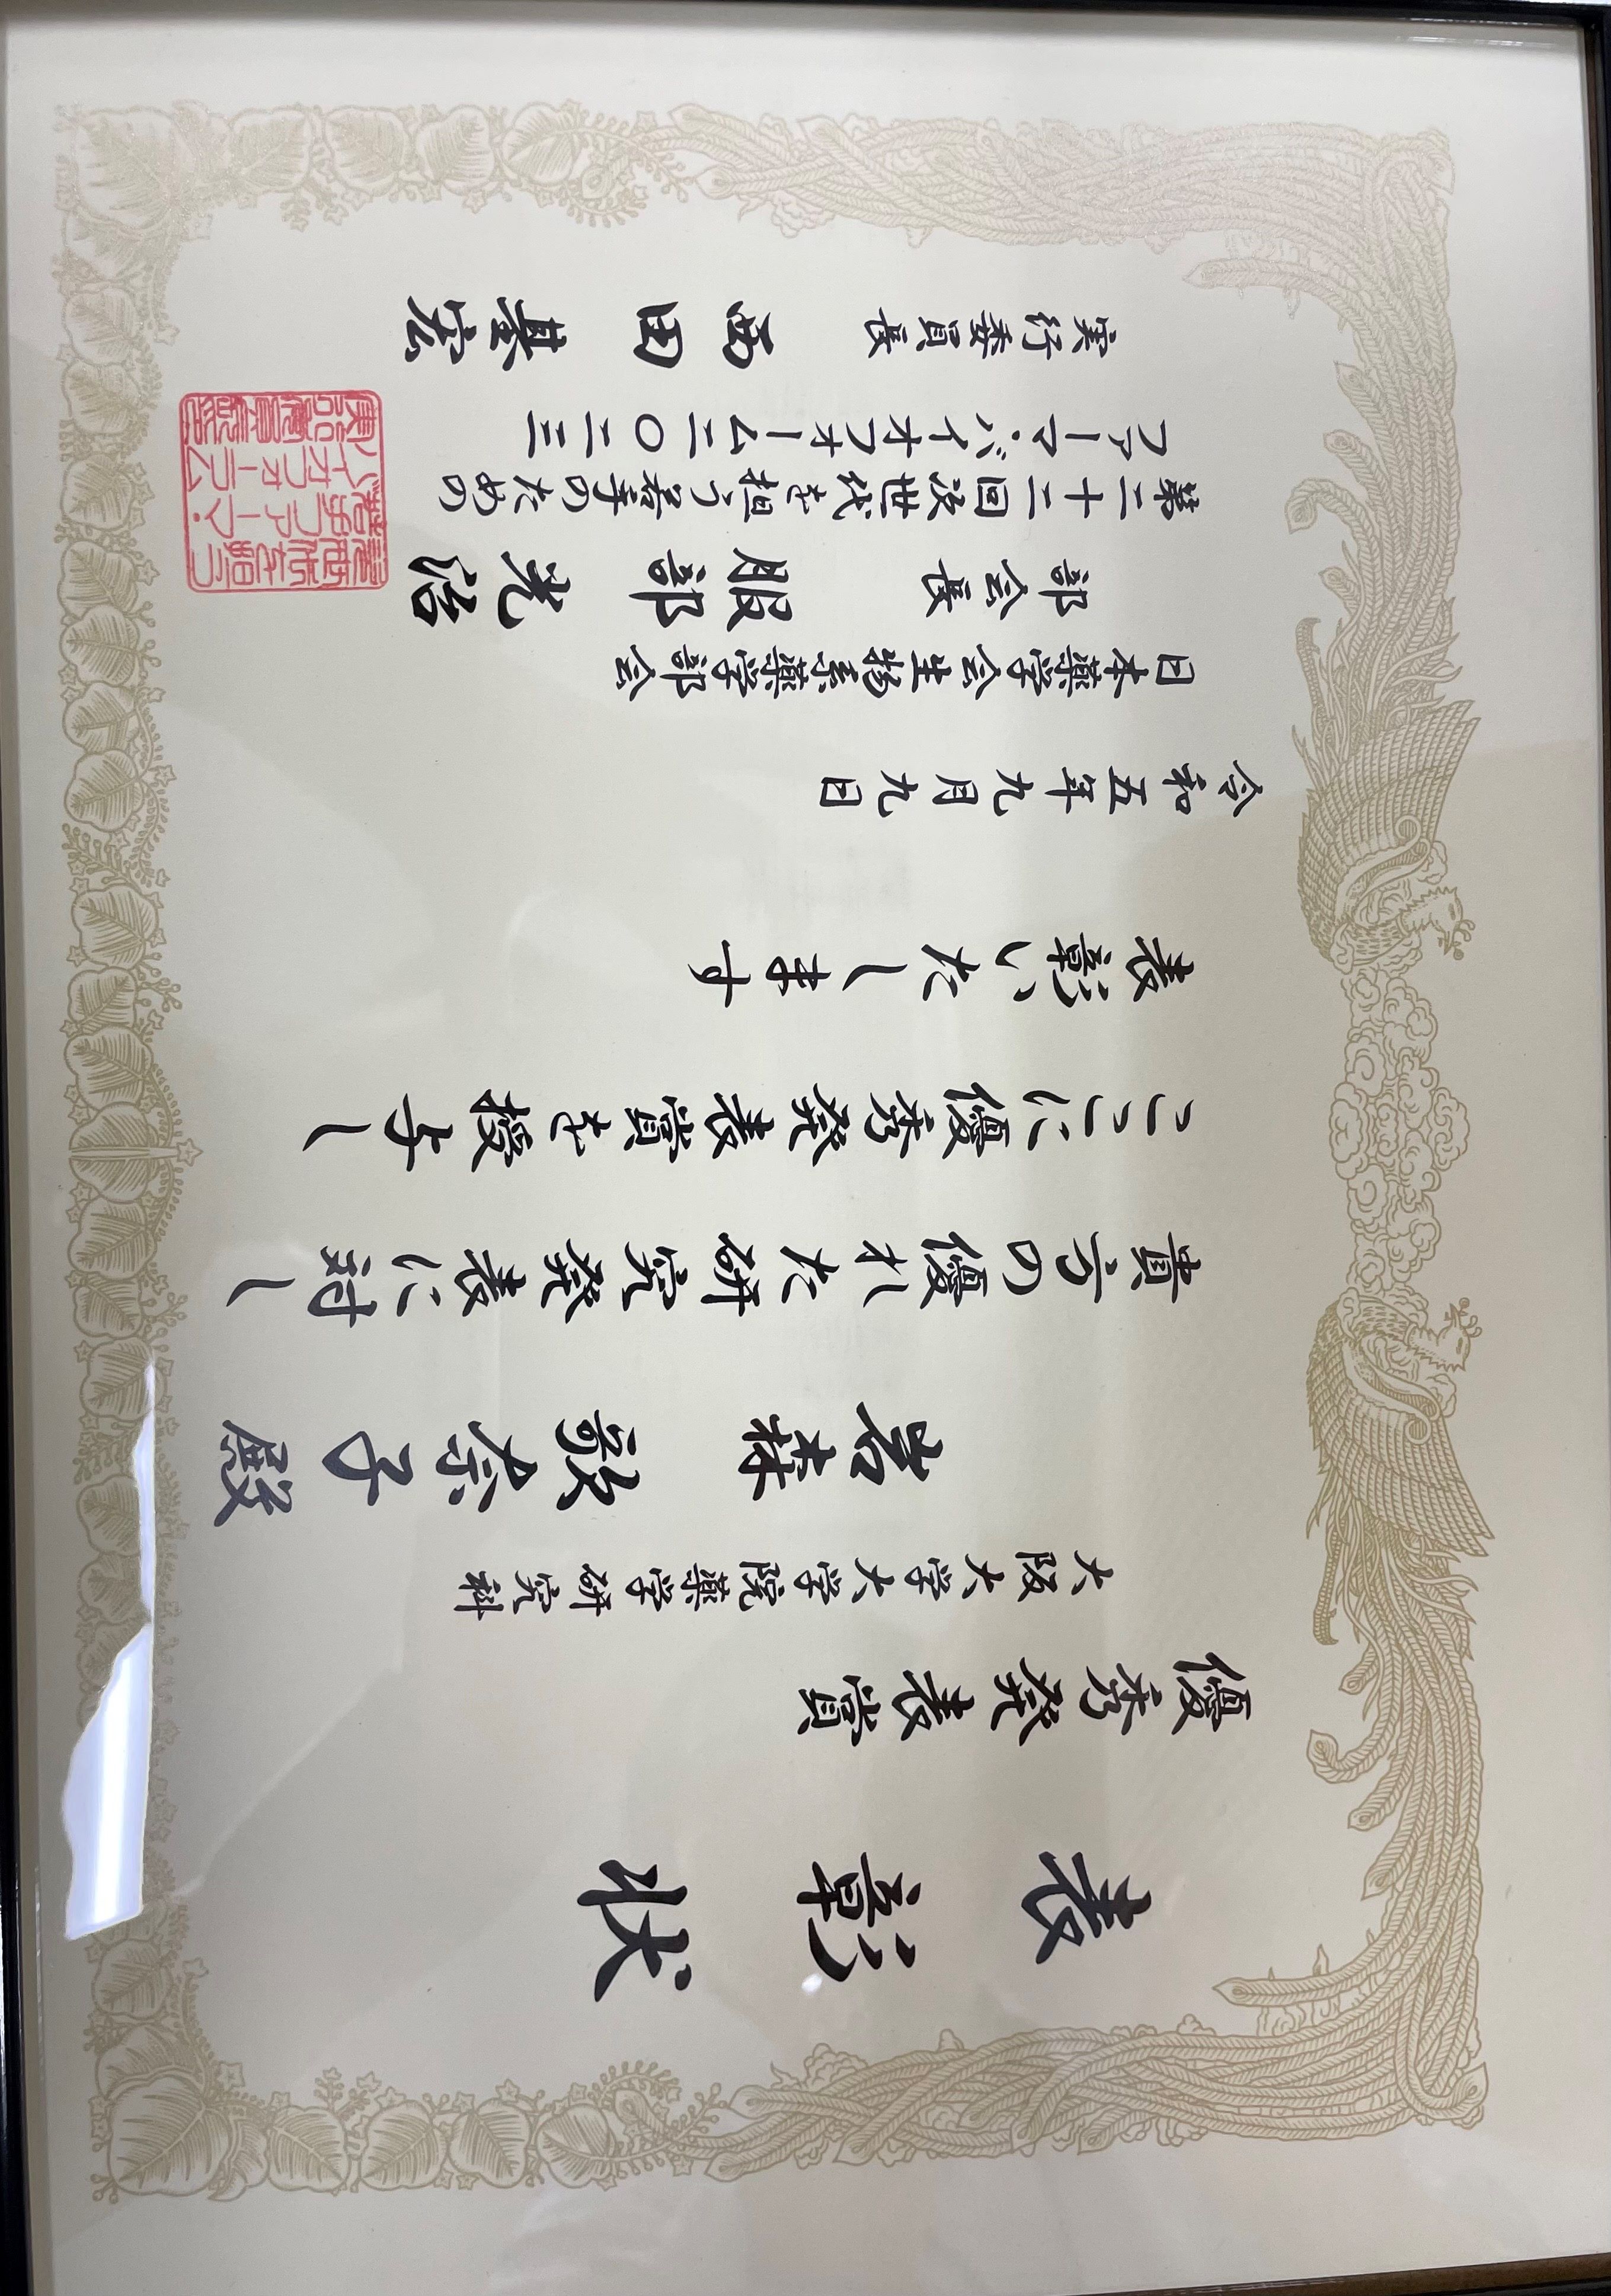 表彰状
優秀発表賞
大阪大学大学院薬学研究科
岩森 敬奈子 殿
貴方の優れた研究発表に対し
ここに優秀発表賞を授与し
表彰いたします
令和五年九月九日
日本薬学会生物系薬学部会
部会長 服部光治
第二十二回次世代を担う若手のための
ファーマ・バイオフォーラム二〇二三
実行委員長 西田基宏